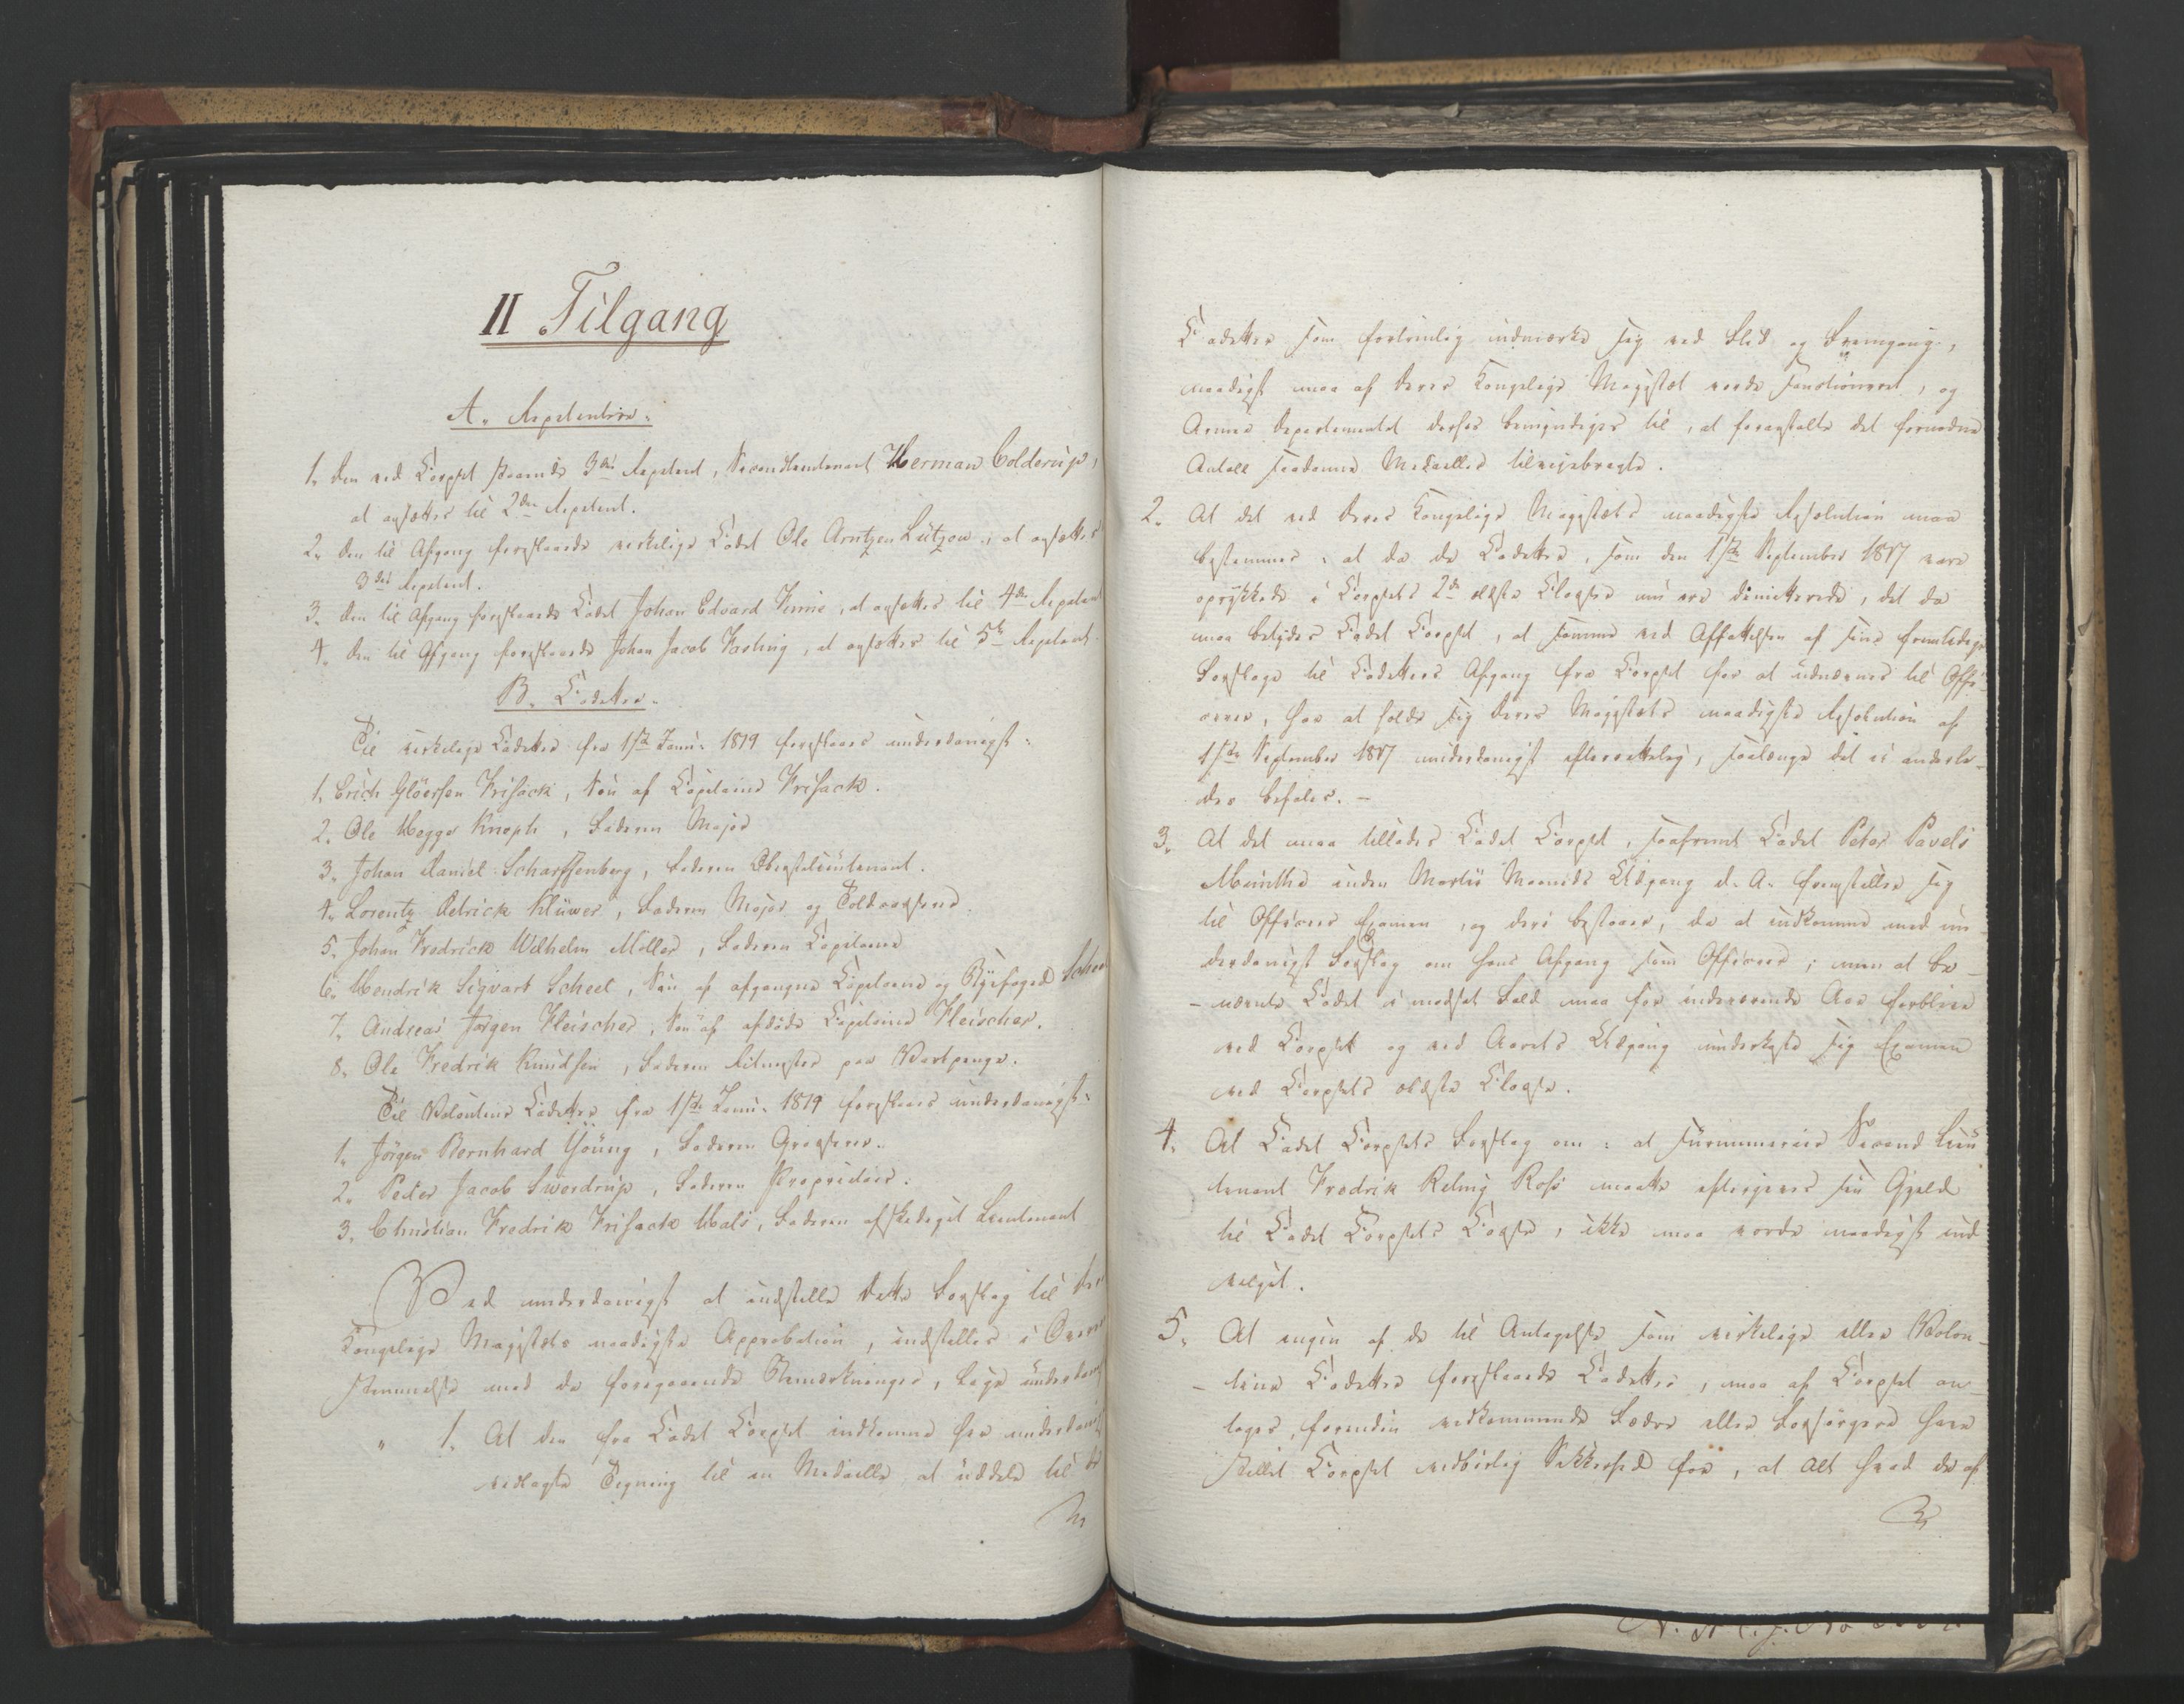 II Tilgang
A. Repetentere.
1. Den ved Corpset staaende 3die Repetent, Secondlieutenant Herman Colderup,
at ansættes til 2den Repetent.
2. Den til Afgang foreslaaede virkelige Cadet Ole Arntzen Lützow, at ansættes
3die Repetent.
3. Den til Afgang foreslaaede Cadet Johan Edvard, at ansættes til 4de Repetent
4. Den til Afgang foreslaaede Johan Jacob, at ansættes til 5te Repetent.
B. Cadetter.
Til virkelige Cadetter fra 1ste Janu: 1819 foreslaaes underdanigst:
1. Erich Gløersen Krisack, Søn af Capitaine Krisack.
2. Ole Hegge Knoph, Faderen Major
3. Johan Daniel Scharffenberg, Faderen Oberstlieutenant.
4. Lorentz Detrick Klüwer, Faderen Major og Toldcasserer.
5. Johan Fredrick Wilhelm Møller, Faderen Capitaine
6. Hendrik Sigvart Scheel, Søn af afgangne Capitaine og Byefoged Scheel
7. Andreas Jørgen Fleischer, Søn af afdøde Capitaine Fleischer.
8. Ole Fredrik Knudsen, Faderen Ritmester paa Vartpenge.
Til Volontaire Cadetter fra 1ste Janu: 1819 foreslaaes underdanigst:
1. Jørgen Bernhard Young, Faderen Grosserer.
2. Peter Jacob Swerdrup, Faderen Proprietair.
3. Christian Fredrik Krisack Hals, Faderen afskediget Lieutenant
Ved underdanigst at indstille dette Forslag til
Kongelige Majestæts naadigste Approbation, indstilles i Overeens
stemmelse med de foregaaende Bemærkninger, lige underdanigst
1. At den fra Cadet Corpset indkomne her underdanigst
vedlagte Tegning til en Medaille, at uddele til de
Cadetter som fortrinlig udmærke sig ved Flid og Fremgang,
naadigst maa af Deres Kongelige Majestæt vorde sanctioneret, og
Armee Departementet derhos bemyndiges til, at foranstalte det fornødne
Antall saadanne Medailler tilveiebragte.
2. At det ved Deres Kongelige Majestæts naadigste Resolution maa
bestemmes: at da de Cadetter, som den 1ste September 1817 vare
oprykkede i Corpsets 2de ældste Classer nu ere dimitterede, det da
maa betydes Cadet Corpset, at samme ved Affattelsen af sine fremtidige
Forslage til Cadetters Afgang fra Corpset for at udnævnes til Offi-
cerer, har at holde sig Deres Majestæts naadigste Resolution af
1ste September 1817 underdanigst efterrettelig, saalænge det ei anderle-
des befales. –
3. At det maa tillades Cadet Corpset, saafremt Cadet Peter Pavels
Munthe inden Martii Maaneds Udgang d. A. fremstiller sig
til Officeers Examen, og deri bestaaer, da at indkomme med un-
derdanigst Forslag om hans Afgang som Officeer; men at be-
- nævnte Cadet i modsat Fald maa for indeværende Aar forblive
ved Corpset og ved Aarets Udgang underkaste sig Examen
med Corpsets ældste Classe.
4. At Cadet Corpsets Forslag om: at Surnumerair Second Lieu-
tenant Fredrik Relling Ross maatte eftergives sin Gjeld
til Cadet Corpsets Casse, ikke maa vorde naadigst ind-
vilget.
5. At ingen af de til Antagelse som virkelige eller Volon-
- taire Cadetter foreslaaede Cadetter, maa af Corpset an-
tages, forinden vedkommende Fædre eller Forsørgere have
stillet Corpset vedbørlig Sikkerhed for, at Alt hvad de af